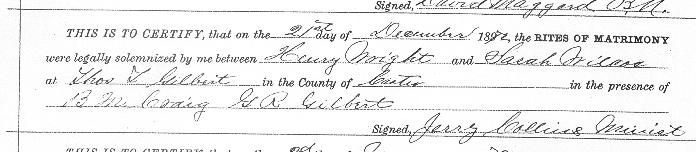 Signed, David Maggard
THIS IS TO CERTIFY, that on the 21st day of December 1892, the RITES OF MATRIMONY
were legally solemnized by me between Henry Wright and Sarah Wilson
at Thos T Gilbert in the County of Leslie in the presence of
B M Craig G R Gilbert
Signed, Jerry Collins Minist
THIS IS TO CERTIFY, that on the